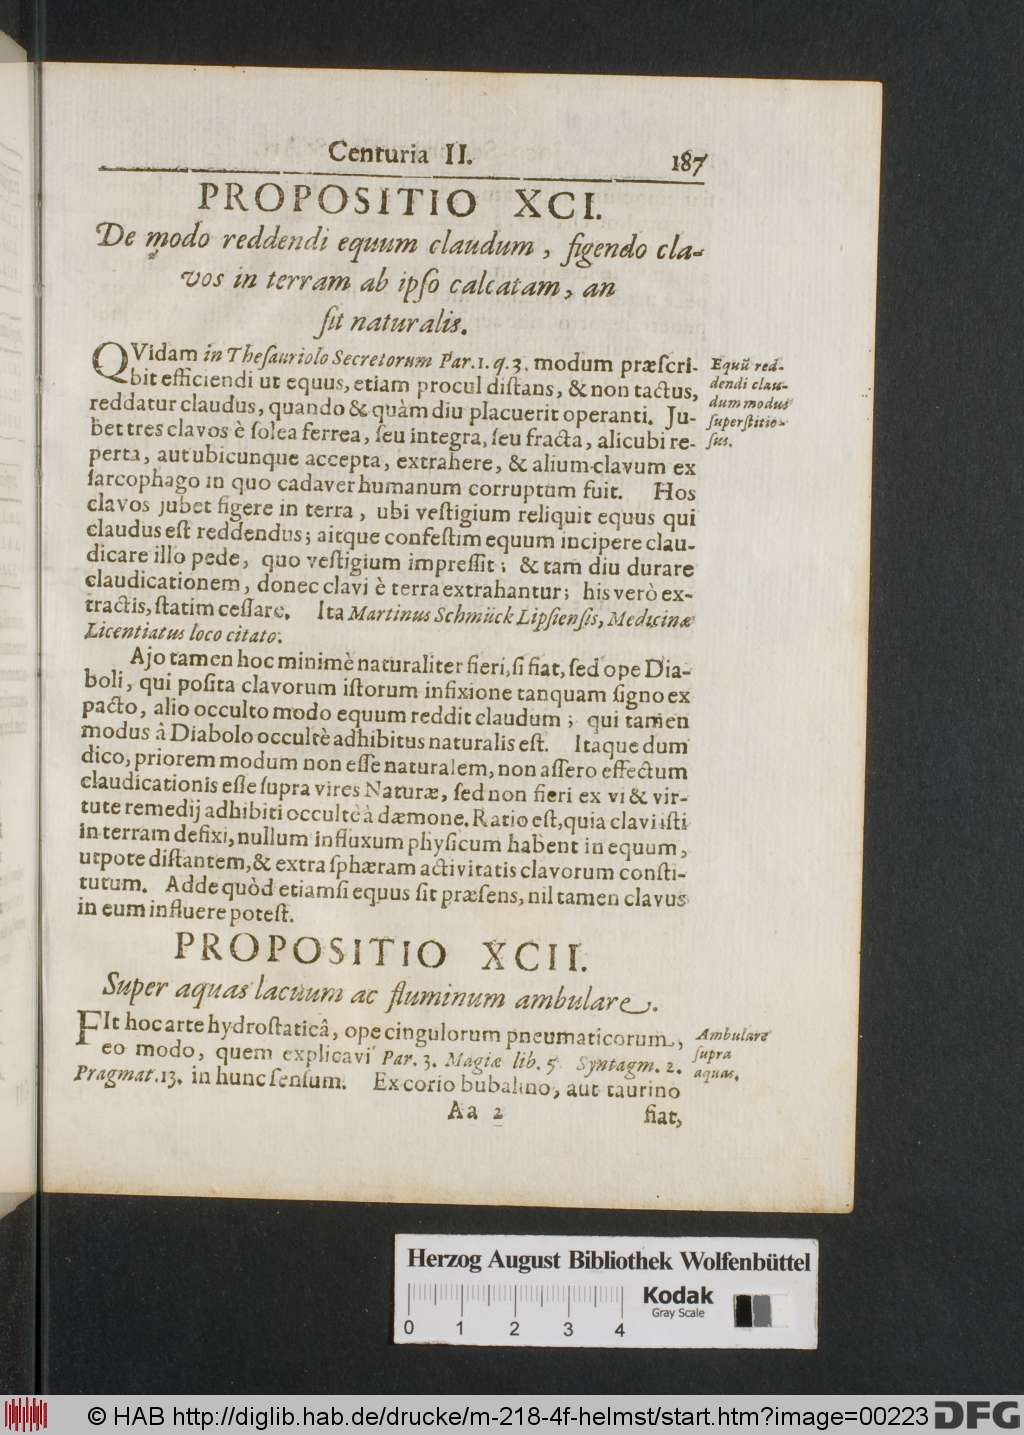 Centuria II. 187
PROPOSITIO XCI.
De modo reddendi equum claudum, figendo cla-
vos in terram ab ipſo calcatam, an
ſit naturalis.
QVidam in Theſauriolo Secretorum Par.1.q.3. modum præſcri-
bit efficiendi ut equus, etiam procul diſtans, & non tactus,
reddatur claudus, quando & quàm diu placuerit operanti. Ju-
bet tres clavos è ſolea ferrea, ſeu integra, ſeu fracta, alicubi re-
perta, aut ubicunque accepta, extrahere, & alium clavum ex
ſarcophago in quo cadaver humanum corruptum fuit. Hos
clavos jubet figere in terra, ubi veſtigium reliquit equus qui
claudus eſt reddendus; aitque confeſtim equum incipere clau-
dicare illo pede, quo veſtigium impreſſit; & tam diu durare
claudicationem, donec clavi è terra extrahantur; his verò ex-
tractis, ſtatim ceſſare. Ita Martinus Schmück Lipſienſis, Medicinæ
Licentiatus loco citato.
Equū red-
dendi clau-
dum modus
ſuperſtitio-
ſus.
Ajo tamen hoc minimè naturaliter fieri, ſi fiat, ſed ope Dia-
boli, qui poſita clavorum iſtorum infixione tanquam ſigno ex
pacto, alio occulto modo equum reddit claudum; qui tamen
modus à Diabolo occultè adhibitus naturalis eſt. Itaque dum
dico, priorem modum non eſſe naturalem, non aſſero effectum
claudicationis eſſe ſupra vires Naturæ, ſed non fieri ex vi & vir-
tute remedij adhibiti occultè à dæmone. Ratio eſt, quia clavi iſti
in terram defixi, nullum influxum phyſicum habent in equum,
utpote diſtantem, & extra ſphæram activitatis clavorum conſti-
tutum. Adde quòd etiamſi equus ſit præſens, nil tamen clavus
in eum influere poteſt.
PROPOSITIO XCII.
Super aquas lacuum ac fluminum ambulare.
FIt hoc arte hydroſtaticâ, ope cingulorum pneumaticorum,
eo modo, quem explicavi Par. 3. Magiæ lib. 5. Syntagm. 2.
Pragmat. 13. in hunc ſenſum. Ex corio bubalino, aut taurino
Ambulare
ſupra
aquas.
Aa 2 fiat,
Herzog August Bibliothek Wolfenbüttel
Kodak
Gray Scale
0 1 2 3 4
© HAB http://diglib.hab.de/drucke/m-218-4f-helmst/start.htm?image=00223 DFG